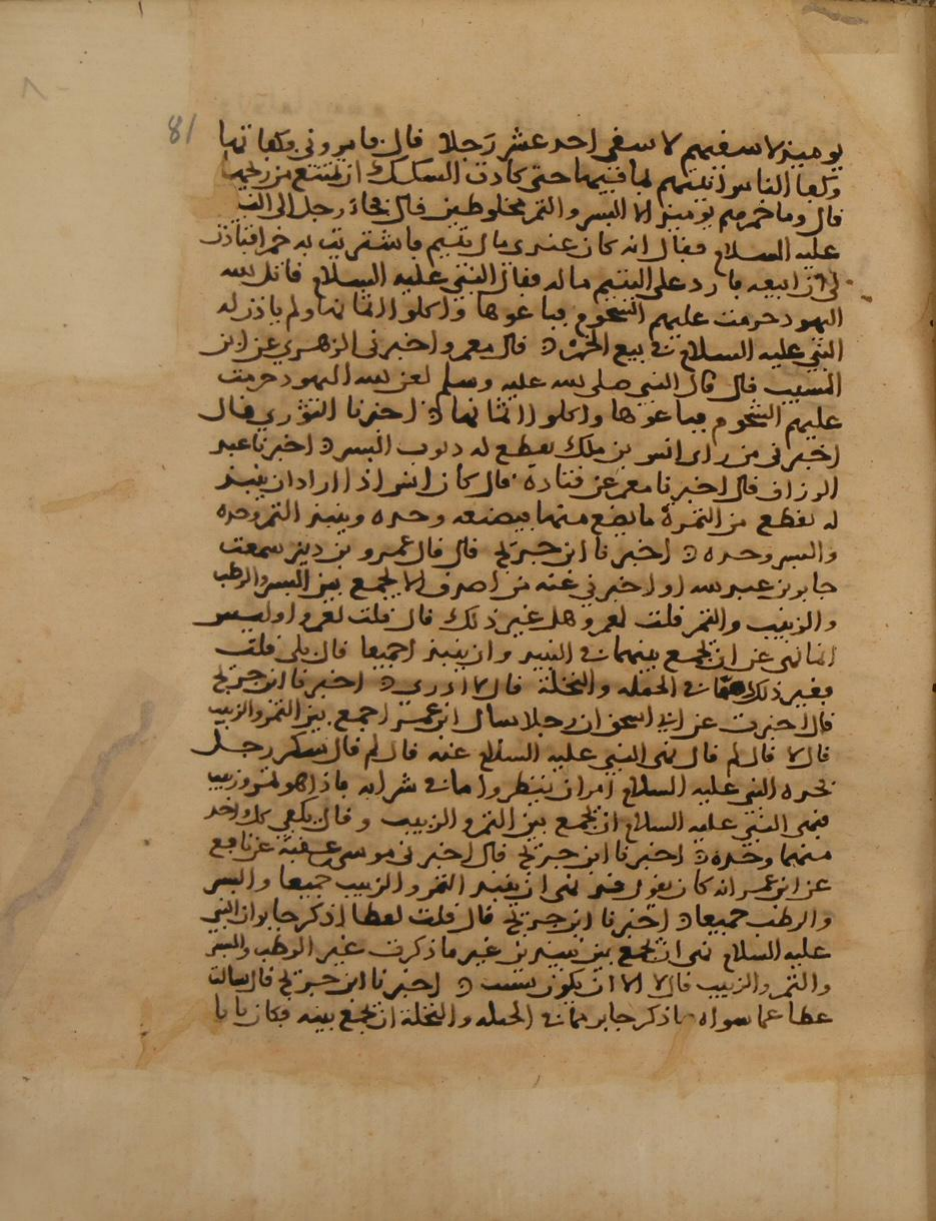 81
يوميذ لاسقيهم لاسقي احد عشر رجلا قال فامروني فكفاتها
وكفا الناس انيتهم بما فيها حتى كادت السكك ان تمتنع من ريحها
قال وما خمرهم يوميذ الا البسر والتمر مخلوطين قال فجاء رجل الى النبي
عليه السلام فقال انه كان عندي مال يتيم فاشتريت به خمرا فتاذن
لي ان ابيعه فارد على اليتيم ماله فقال النبي عليه السلام قاتل الله
اليهود حرمت عليهم الشحوم فباعوها واكلوا اثمانها ولم ياذن له
النبي عليه السلام في بيع الخمر ه قال معمر واخبرني الزهري عن ابن
المسيب قال قال النبي صلى الله عليه وسلم لعن الله اليهود حرمت
عليهم الشحوم فباعوها واكلوا اثمانها ه اخبرنا الثوري قال
اخبرني من راى انس بن ملك يقطع له ذنوب البسر ه اخبرنا عبد
الرزاق قال اخبرنا معمر عن قتادة قال كان انس اذا اراد ان ينبذ
له يقطع من التمرة ما نضج منها فيضعه وحده وينبذ التمر وحده
والبسر وحده ه اخبرنا ابن جريج قال قال عمرو بن دينر سمعت
جابر بن عبد الله او اخبرني عنه من اصدق الا يجمع بين البسر والرطب
والزبيب والتمر قلت لعمرو هل غير ذلك قال قلت لعمرو اوليس
انما نهي عن ان يجمع بينهما في النبيذ وان ينبذا جميعا قال بلى قلت
فغير ذلك مما في الحبلة والنخلة قال لا ادري ه اخبرنا ابن جريج
قال اخبرت عن ابي اسحق ان رجلا سال ابن عمر اجمع بين التمر والزبيب
قال لا قال لم قال نهى النبي عليه السلام عنه قال لم قال سكر رجل
فحده النبي عليه السلام امر ان ينظروا ما في شرابه فاذا هو تمر وزبيب
فنهى النبي عليه السلام ان يجمع بين التمر والزبيب وقال يكفي كل واحد
منهما وحده ه اخبرنا ابن جريج قال اخبرني موسى بن عقبة عن نافع
عن ابن عمر انه كان يقول قد نهي ان ينبذ التمر والزبيب جميعا والبسر
والرطب جميعا ه اخبرنا ابن جريج قال قلت لعطا اذكر جابر ان النبي
عليه السلام نهى ان يجمع بين نبيذين غير ما ذكرت غير الرطب والبسر
والتمر والزبيب قال لا الا ان يكون نسيت ه اخبرنا ابن جريج قال سالت
عطا عما سواه ما ذكر جابر مما في الحبلة والنخلة ان يجمع بينه فكان يابا